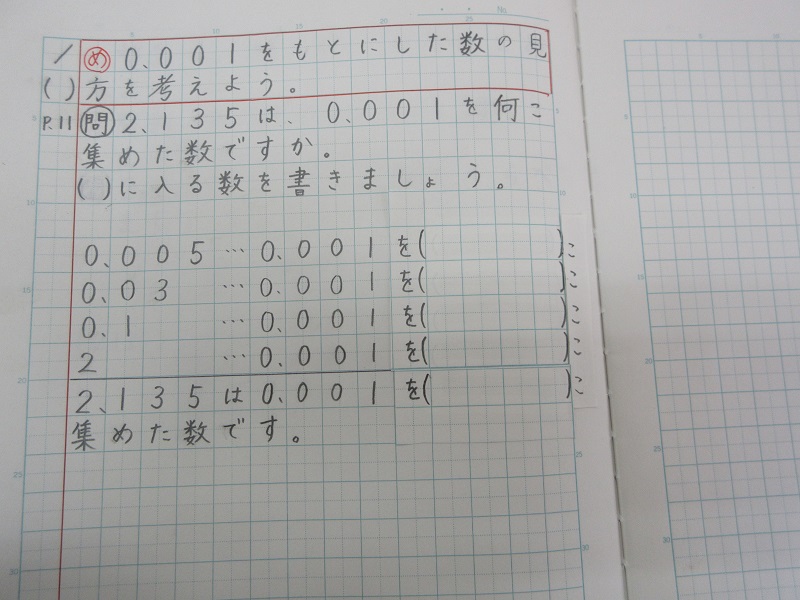 / め 0.001をもとにした数の見
( ) 方を考えよう。
P.11 問 2.135は、0.001を何こ
集めた数ですか。
( )に入る数を書きましょう。
0.005…0.001を( )こ
0.03 …0.001を( )こ
0.1 …0.001を( )こ
2 …0.001を( )こ
2.135は0.001を( )こ
集めた数です。